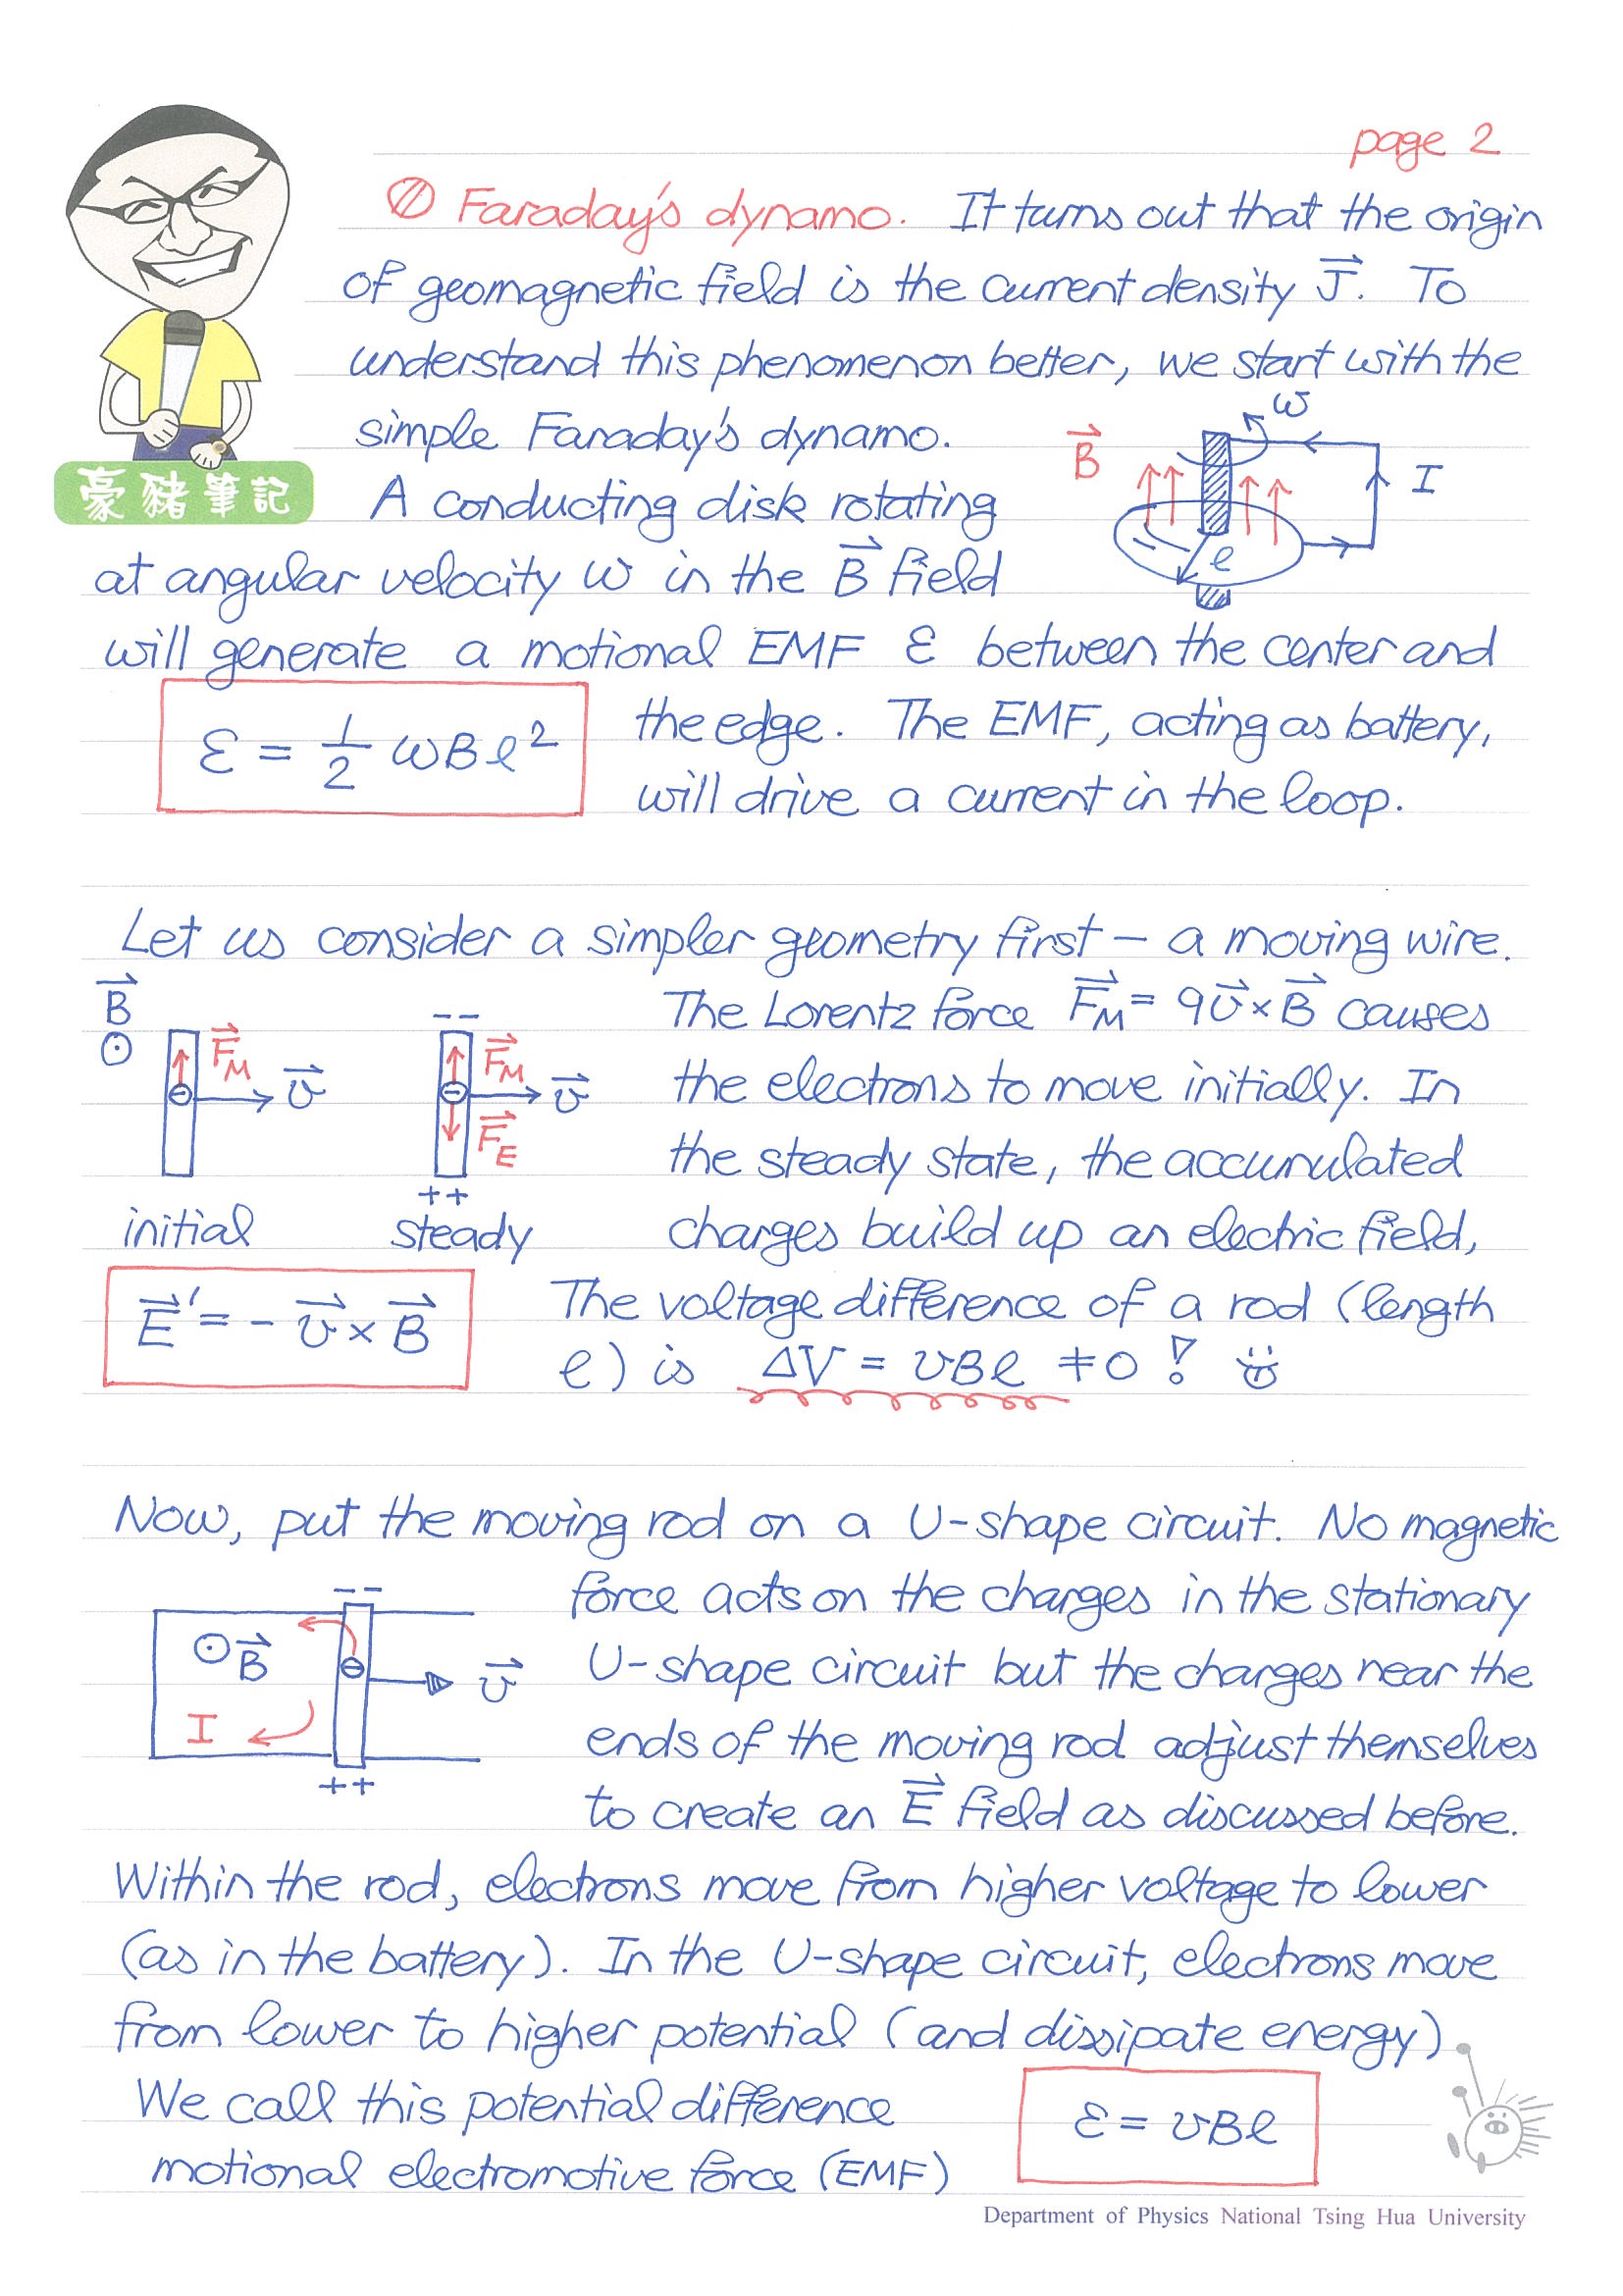 page 2
Faraday's dynamo. It turns out that the origin
of geomagnetic field is the current density J⃗. To
understand this phenomenon better, we start with the
simple Faraday's dynamo.
ω
B⃗
I
ℓ
豪豬筆記
A conducting disk rotating
at angular velocity ω in the B⃗ field
will generate a motional EMF ℰ between the center and
ℰ = 1/2 ωBℓ²
the edge. The EMF, acting as battery,
will drive a current in the loop.
Let us consider a simpler geometry first — a moving wire.
B⃗
F⃗M
v⃗
initial
- -
F⃗M
v⃗
F⃗E
++
steady
The Lorentz force F⃗M = qv⃗×B⃗ causes
the electrons to move initially. In
the steady state, the accumulated
charges build up an electric field,
E⃗' = - v⃗ × B⃗
The voltage difference of a rod (length
ℓ) is ΔV = vBℓ ≠ 0 !
Now, put the moving rod on a U-shape circuit. No magnetic
- -
B⃗
v⃗
I
++
force acts on the charges in the stationary
U-shape circuit but the charges near the
ends of the moving rod adjust themselves
to create an E⃗ field as discussed before.
Within the rod, electrons move from higher voltage to lower
(as in the battery). In the U-shape circuit, electrons move
from lower to higher potential (and dissipate energy).
We call this potential difference
motional electromotive force (EMF)
ℰ = vBℓ
Department of Physics National Tsing Hua University